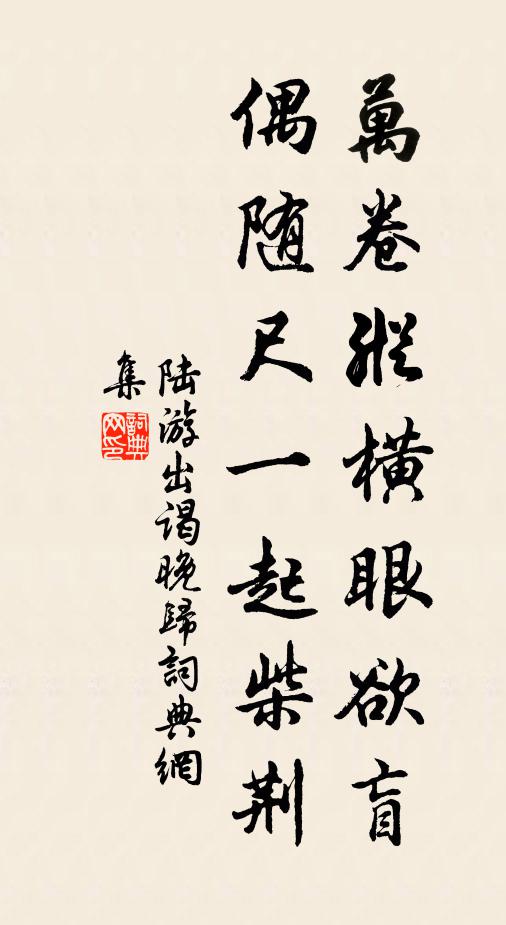 萬卷縱橫眼欲盲
偶随尺一起柴荆
陆游出谒晚歸詞典網
集
詞典网印